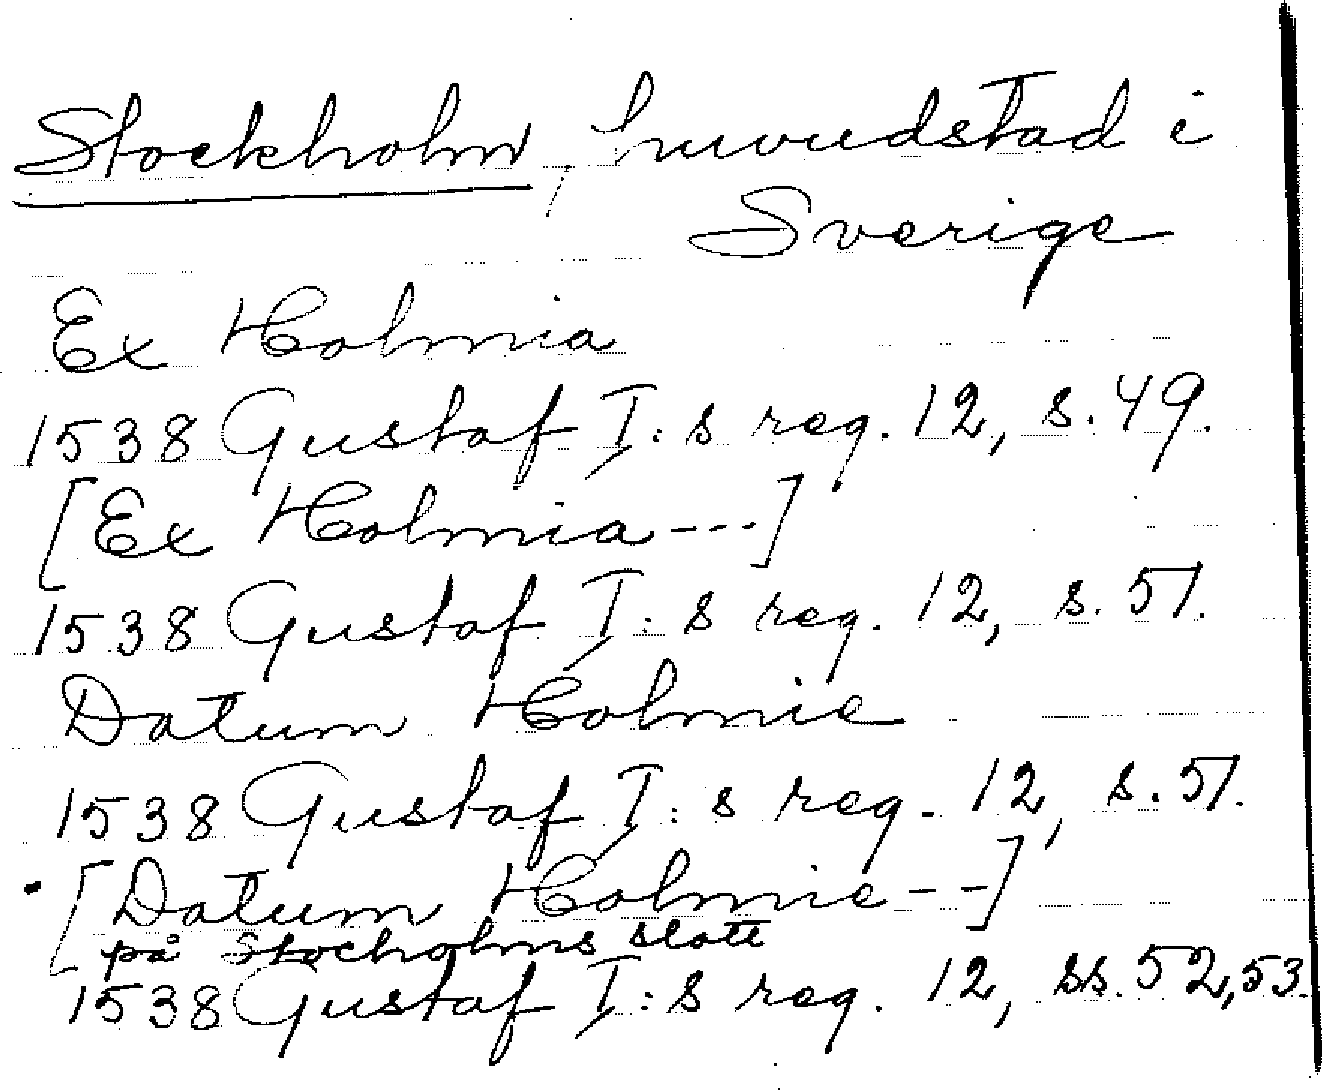 Stockholm, huvudstad i
Sverige
Ex Holmia
1538 Gustaf I:s reg. 12, s. 49.
[Ex Holmia ---]
1538 Gustaf I:s reg. 12, s. 51.
Datum Holmie
1538 Gustaf I:s reg. 12, s. 51.
[Datum Holmie --]
på Stocholms slott
1538 Gustaf I:s reg. 12, ss. 52,53.